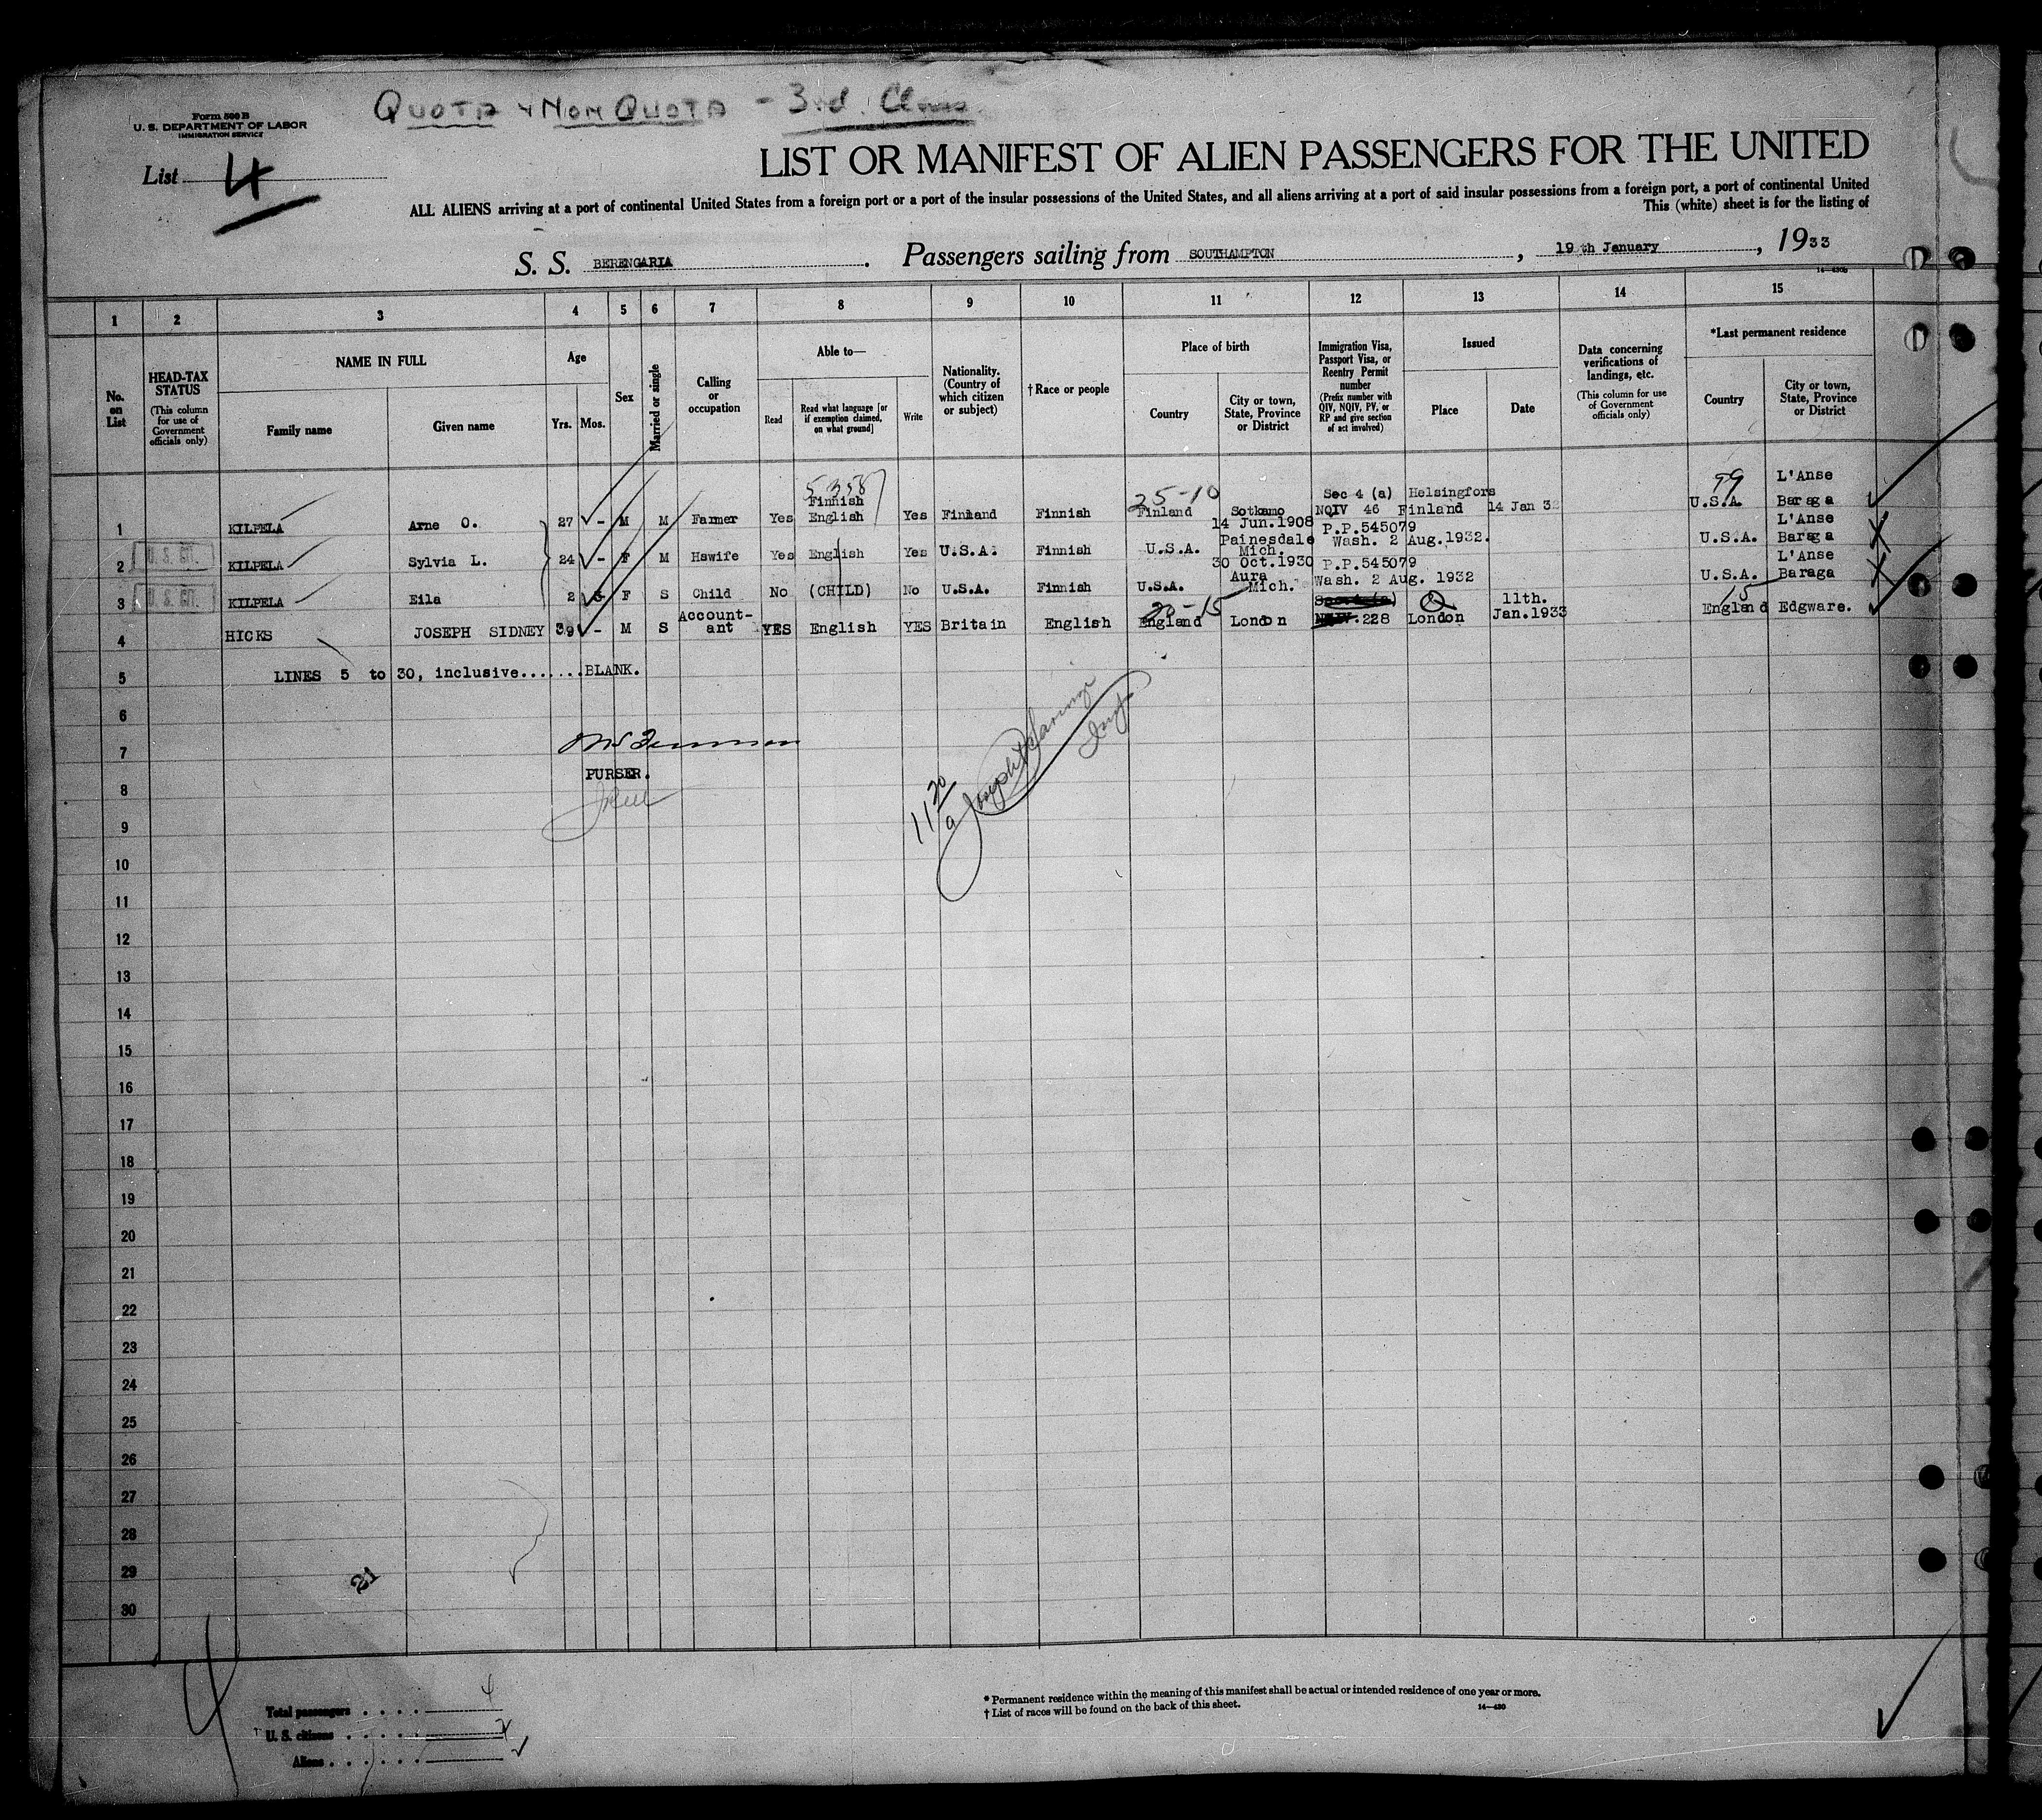 QUOTA & NON QUOTA - 3rd. Class
Form 500 B
U. S. DEPARTMENT OF LABOR
IMMIGRATION SERVICE
List 4
LIST OR MANIFEST OF ALIEN PASSENGERS FOR THE UNITED
ALL ALIENS arriving at a port of continental United States from a foreign port or a port of the insular possessions of the United States, and all aliens arriving at a port of said insular possessions from a foreign port, a port of continental United
This (white) sheet is for the listing of
S. S. BERENGARIA. Passengers sailing from SOUTHAMPTON, 19th January, 1933
1 2 3 4 5 6 7 8 9 10 11 12 13 14 15
No. on List
HEAD-TAX STATUS
(This column for use of Government officials only)
NAME IN FULL
Family name
Given name
Age
Yrs. Mos.
Sex
Married or single
Calling or occupation
Able to—
Read
Read what language [or if exemption claimed, on what ground]
Write
Nationality. (Country of which citizen or subject)
† Race or people
Place of birth
Country
City or town, State, Province or District
Immigration Visa, Passport Visa, or Reentry Permit number
(Prefix number with QIV, NQIV, PV, or RP and give section of act involved)
Issued
Place
Date
Data concerning verifications of landings, etc.
(This column for use of Government officials only)
*Last permanent residence
Country
City or town, State, Province or District
25-10 Sec 4 (a) Helsingfors 99 L'Anse
1 KILPELA Arne O. 27 - M M Farmer Yes Finnish English Yes Finland Finnish Finland Sotkamo NQIV 46 Finland 14 Jan 33 U.S.A. Baraga
14 Jun.1908 P.P.545079 L'Anse
2 U. S. CIT. KILPELA Sylvia L. 24 - F M Hswife Yes English Yes U.S.A. Finnish U.S.A. Painesdale Mich. Wash. 2 Aug.1932. U.S.A. Baraga
30 Oct.1930 P.P.545079 L'Anse
3 U. S. CIT. KILPELA Eila 2 F S Child No (CHILD) No U.S.A. Finnish U.S.A. Aura Mich. Wash. 2 Aug. 1932 U.S.A. Baraga
20-15 Sec 4 (a) Q 11th. 15
4 HICKS JOSEPH SIDNEY 39 - M S Account-ant YES English YES Britain English England London 228 London Jan.1933 England Edgware.
5 LINES 5 to 30, inclusive.......BLANK.
6
7
PURSER.
8
9
10
11
12
13
14
15
16
17
18
19
20
21
22
23
24
25
26
27
28
29
30
21
Total passengers . . . . 4
U. S. citizens . . . . 2
Aliens . . . . . .
* Permanent residence within the meaning of this manifest shall be actual or intended residence of one year or more.
† List of races will be found on the back of this sheet.
14—430